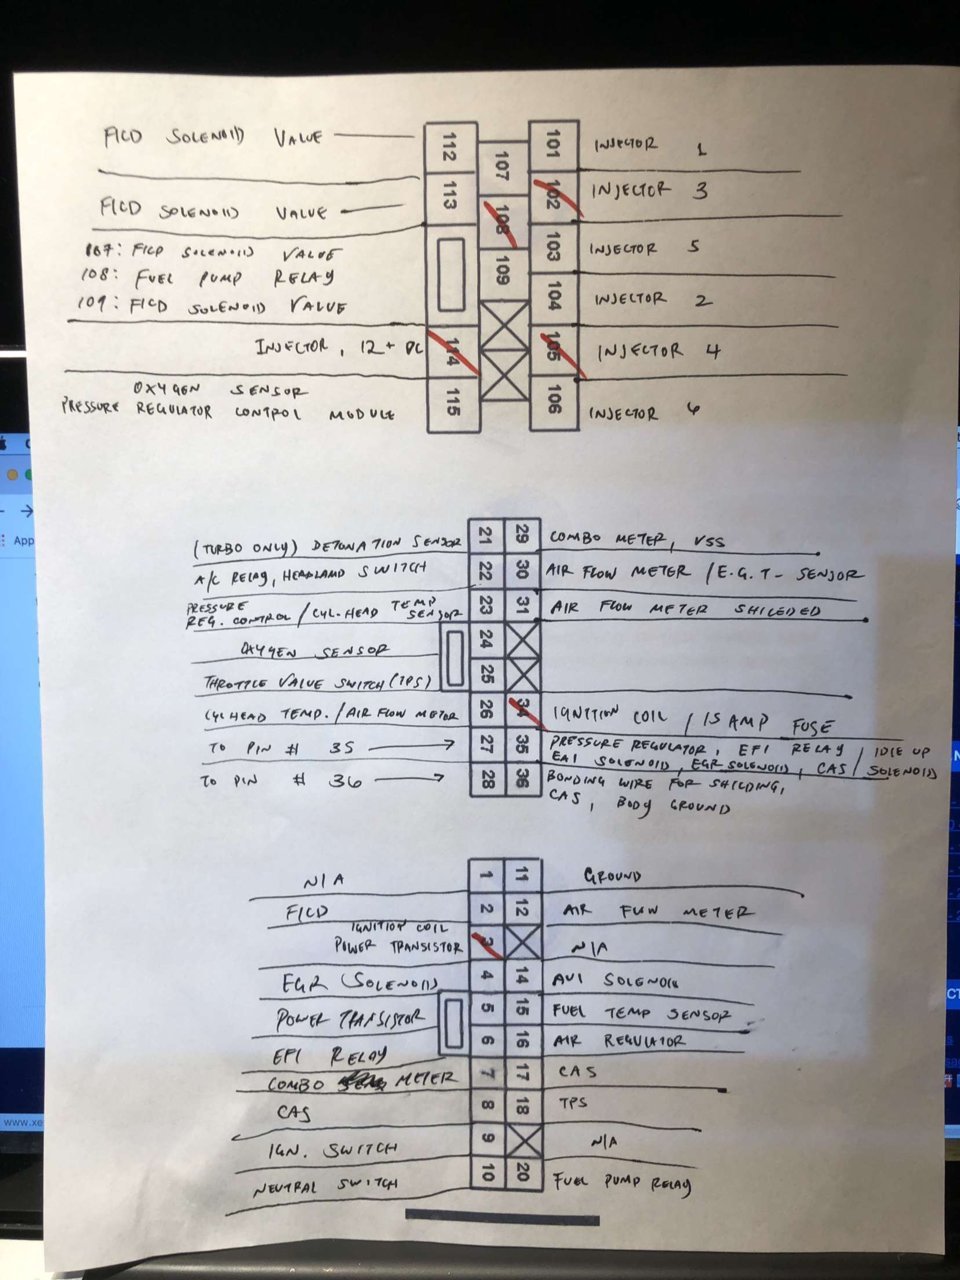 FICD SOLENOID VALUE
112
107
101
INJECTOR 1
113
102
INJECTOR 3
FICD SOLENOID VALUE
108
103
INJECTOR 5
107: FICD SOLENOID VALUE
108: FUEL PUMP RELAY
109: FICD SOLENOID VALUE
109
104
INJECTOR 2
INJECTOR, 12+ DC
114
105
INJECTOR 4
OXYGEN SENSOR
PRESSURE REGULATOR CONTROL MODULE
115
106
INJECTOR 6
(TURBO ONLY) DETONATION SENSOR
21
29
COMBO METER, VSS
A/C RELAY, HEADLAMD SWITCH
22
30
AIR FLOW METER / E.G.T- SENSOR
PRESSURE
REG. CONTROL / CYL-HEAD TEMP SENSOR
23
31
AIR FLOW METER SHILEDED
OXYGEN SENSOR
24
THROTTLE VALUE SWITCH (TPS)
25
CYL HEAD TEMP. / AIR FLOW METOR
26
34
IGNITION COIL / 15 AMP FUSE
TO PIN # 35
27
35
PRESSURE REGULATOR, EFI RELAY / IDLE UP
EAI SOLENOID, EGR SOLENOID, CAS / SOLENOID
TO PIN # 36
28
36
BONDING WIRE FOR SHILDING,
CAS, BODY GROUND
N/A
1
11
GROUND
FICD
2
12
AIR FLOW METER
IGNITION COIL
POWER TRANSISTOR
3
N/A
EGR (SOLENOID)
4
14
AVI SOLENOID
POWER TRANSISTOR
5
15
FUEL TEMP SENSOR
EFI RELAY
6
16
AIR REGULATOR
COMBO METER
7
17
CAS
CAS
8
18
TPS
IGN. SWITCH
9
N/A
NEUTRAL SWITCH
10
20
FUEL PUMP RELAY
App
www.xe